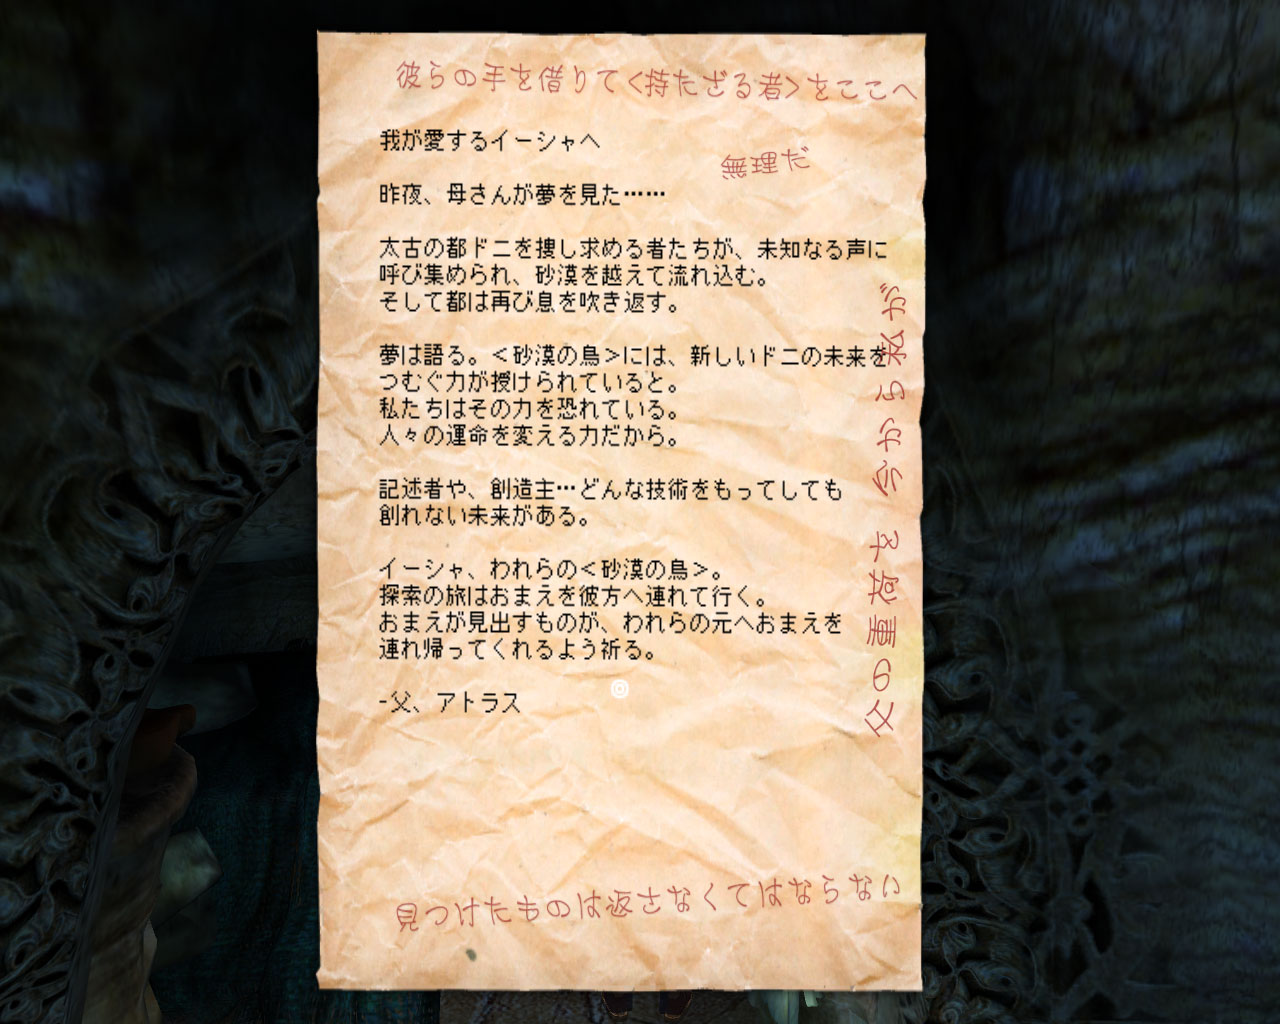 彼らの手を借りて<持たざる者>をここへ
我が愛するイーシャへ
無理だ
昨夜、母さんが夢を見た……
太古の都ドニを捜し求める者たちが、未知なる声に
呼び集められ、砂漠を越えて流れ込む。
そして都は再び息を吹き返す。
夢は語る。<砂漠の鳥>には、新しいドニの未来を
つむぐ力が授けられていると。
私たちはその力を恐れている。
人々の運命を変える力だから。
記述者や、創造主…どんな技術をもってしても
創れない未来がある。
イーシャ、われらの<砂漠の鳥>。
探索の旅はおまえを彼方へ連れて行く。
おまえが見出すものが、われらの元へおまえを
連れ帰ってくれるよう祈る。
-父、アトラス
父の重荷を 今から私が
見つけたものは返さなくてはならない